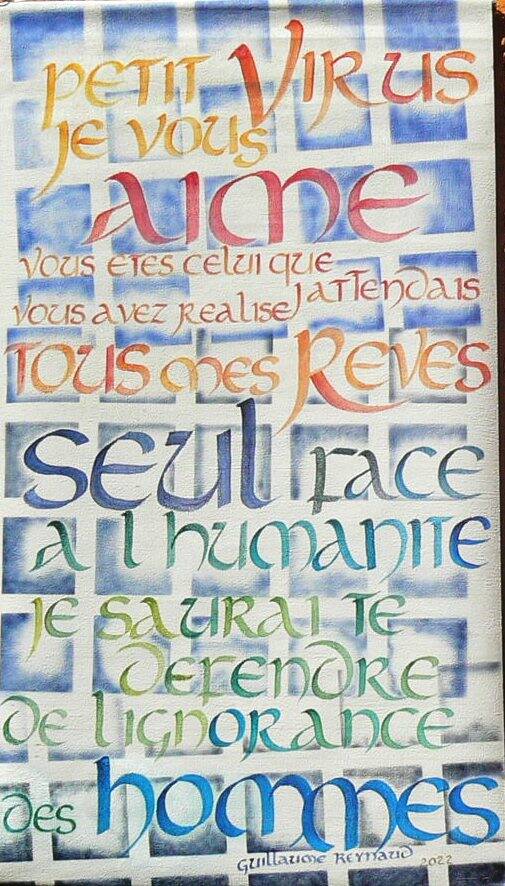 PETIT VIRUS
JE VOUS
AIME
VOUS ETES CELUI QUE
J ATTENDAIS
VOUS AVEZ REALISE
TOUS MES REVES
SEUL FACE
A L HUMANITE
JE SAURAI TE
DEFENDRE
DE L IGNORANCE
DES HOMMES
GUILLAUME REYNAUD 2022